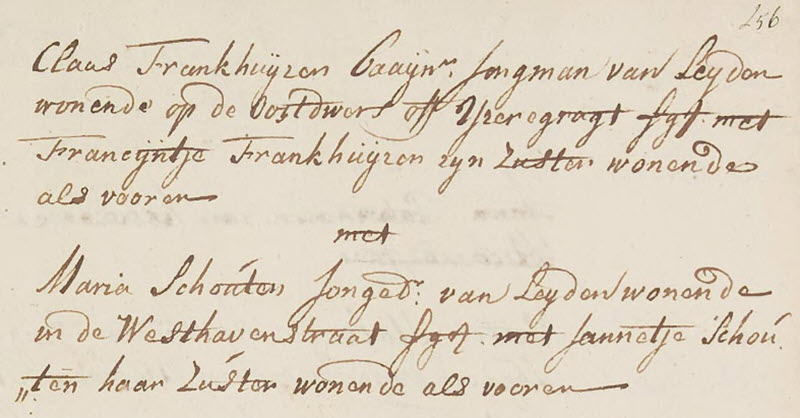 256
Claas Frankhuijzen Baaijwr. Jongman van Leyden
wonende op de Oostdwers off Yzeregragt sgt. met
Francijntje Frankhuijzen zyn Zuster wonende
als vooren
met
Maria Schouten Jongedr. van Leyden wonende
in de Westhavenstraat sgt. met Jannetje Schou
„ten haar Zuster wonende als vooren